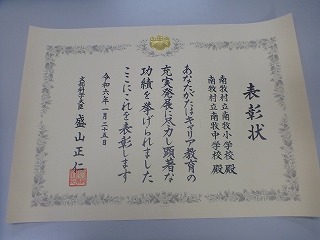 表彰状
南牧村立南牧小学校 殿
南牧村立南牧中学校 殿
あなたがたはキャリア教育の
充実発展に尽力し顕著な
功績を挙げられました
ここにこれを表彰します
令和六年一月二十五日
文部科学大臣 盛山正仁